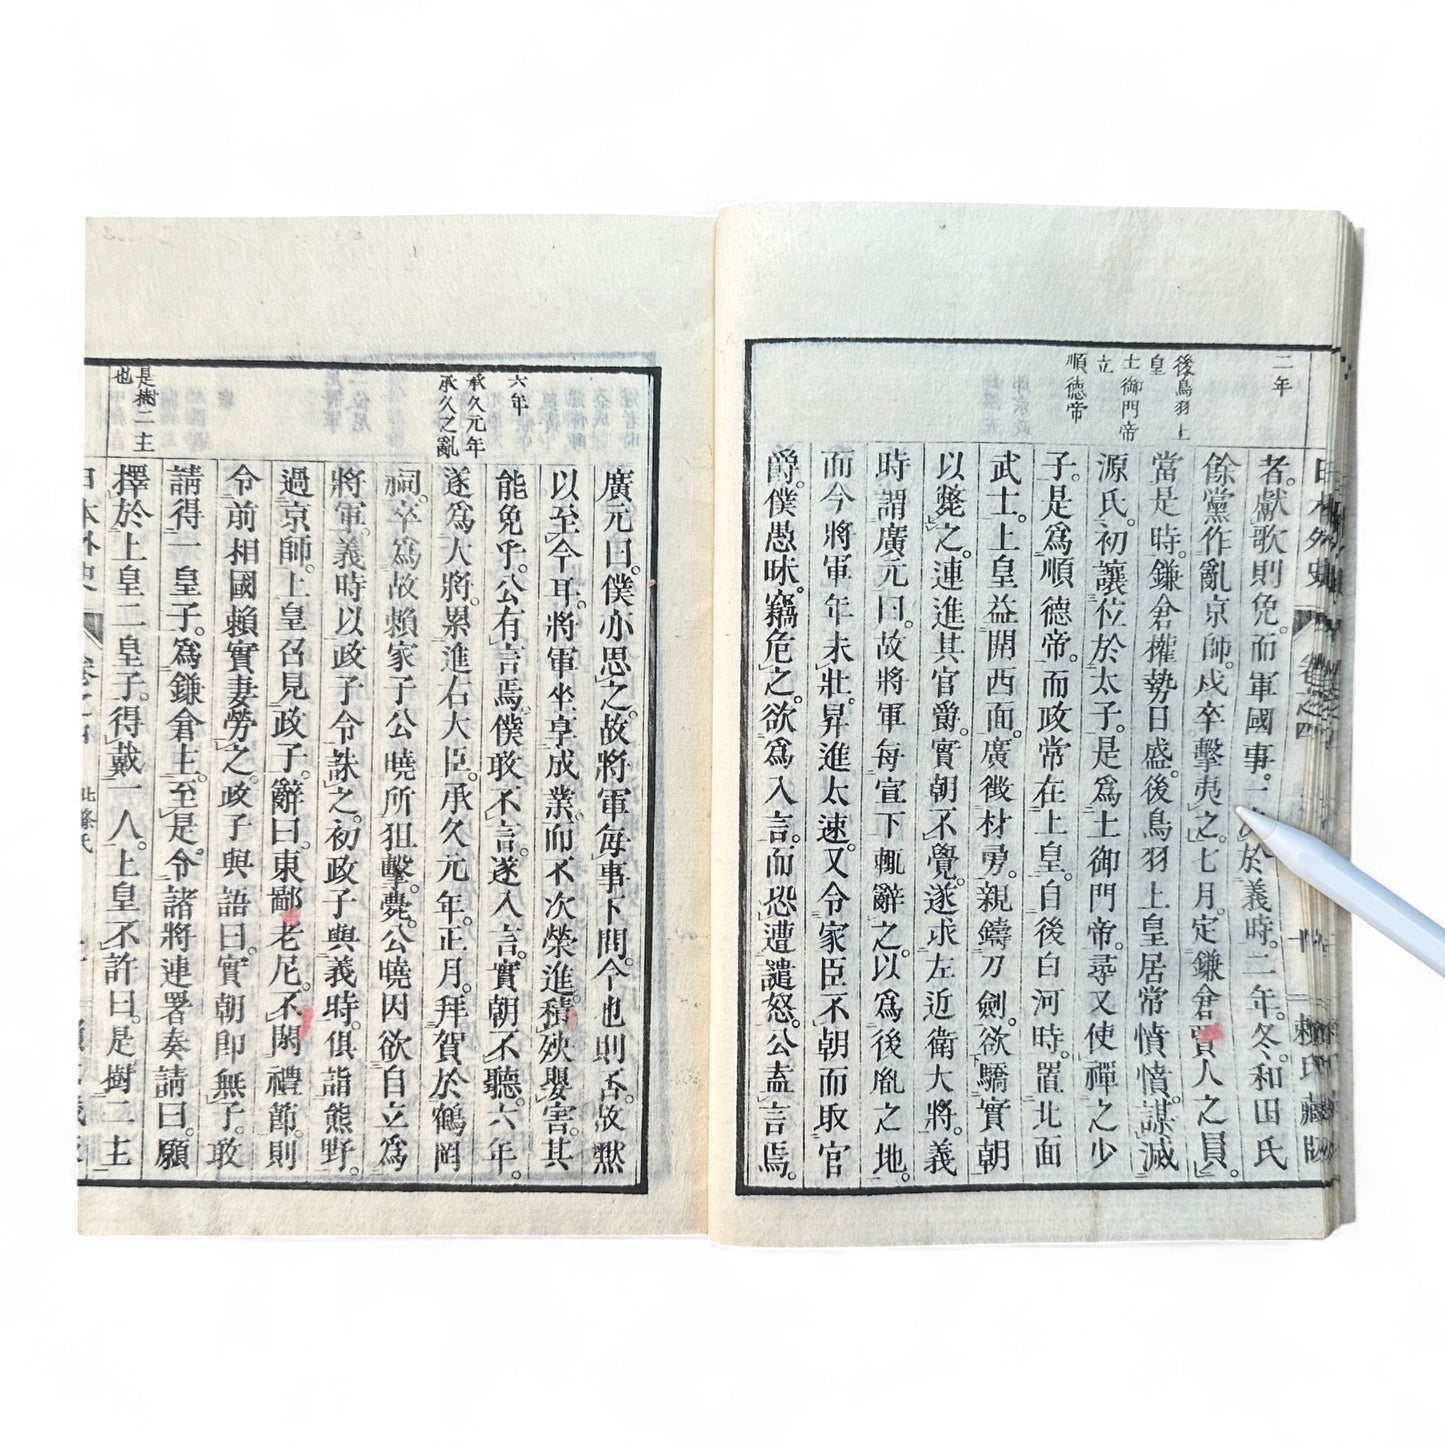 日本外史 卷之四 賴氏藏版
二年
後鳥羽上
皇
土御門帝
立
順德帝
者。獻歌則免。而軍國事。一決於義時。二年。冬。和田氏
餘黨作亂京師。戍卒擊夷之。七月。定鎌倉賓人之員。
當是時。鎌倉權勢日盛。後鳥羽上皇居常憤憤。謀滅
源氏。初讓位於太子。是爲土御門帝。尋又使禪之少
子。是爲順德帝。而政常在上皇。自後白河時。置北面
武士。上皇益開西面。廣徵材勇。親鑄刀劍。欲驕實朝
以斃之。連進其官爵。實朝不覺。遂求左近衛大將。義
時謂廣元曰。故將軍每宣下輒辭之。以爲後胤之地。
而今將軍年未壯。昇進太速。又令家臣不朝而取官
爵。僕愚昧。竊危之。欲爲入言。而恐遭譴怒。公盍言焉。
六年
承久元年
承久之亂
是樹二主
也
廣元曰。僕亦思之。故將軍每事下問。今也則否。故默
以至今耳。將軍坐享成業。而不次榮進。積殃嬰害。其
能免乎。公有言焉。僕敢不言。遂入言。實朝不聽。六年。
遂爲大將。累進右大臣。承久元年。正月。拜賀於鶴岡
祠。卒爲故賴家子公曉所狙擊。薨。公曉因欲自立爲
將軍。義時以政子令誅之。初政子與義時。俱詣熊野。
過京師。上皇召見政子。辭曰。東鄙老尼。不閑禮節。則
令前相國賴實妻勞之。政子與語曰。實朝卽無子。敢
請得一皇子。爲鎌倉主。至是。令諸將連署奏請曰。願
擇於上皇二皇子。得戴一人。上皇不許曰。是樹二主
日本外史 卷之四 北條氏